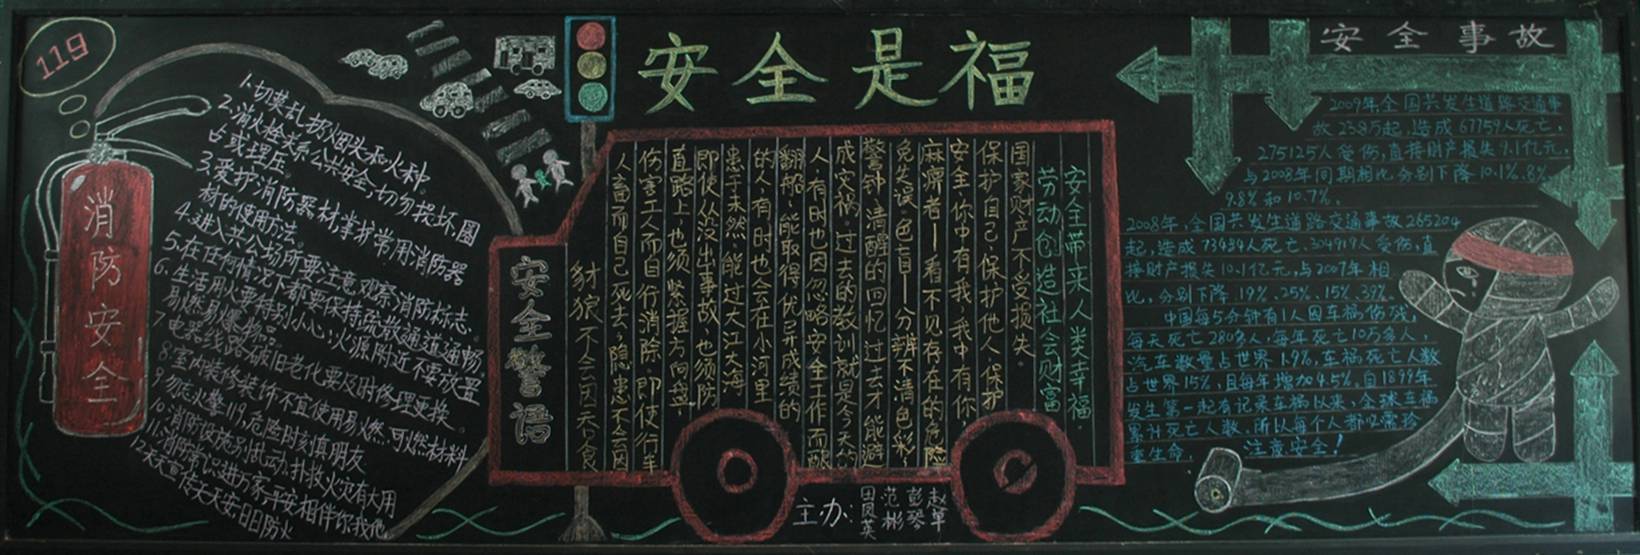 119
消防安全
1.切莫乱扔烟头和火种。
2.消火栓关系公共安全,切勿损坏、圈
占或埋压。
3.爱护消防器材,掌握常用消防器
材的使用方法。
4.进入公共场所要注意观察消防标志。
5.在任何情况下都要保持疏散通道通畅
6.生活用火要特别小心,火源附近不要放置
易燃易爆物品。
7.电器线路破旧老化要及时修理更换。
8.室内装修装饰不宜使用易燃、可燃材料
9.勿忘火警119,危险时刻真朋友
10.消防设施别乱动,扑救火灾有大用
11.消防常识进万家,平安相伴你我他
12.天天宣传天天安日日防火
安全是福
安全警语
安全带来人类幸福,
劳动创造社会财富
国家财产不受损失。
保护自己、保护他人、保护
安全你中有我,我中有你,
麻痹者—看不见存在的危险
免失误。色盲——分辨不清色彩,
警钟,清醒的回忆过去才能避
成灾祸。过去的教训就是今天的
人,有时也因忽略安全工作而酿
翻船,能取得优异成绩的
的人,有时也会在小河里
患于未然。能过大江大海
即使从没出事故,也须防
直路上也须紧握方向盘,
伤害工人而自行消除。即使行车
人畜而自己死去,隐患不会因
豺狼不会因天食
主办:
赵单
彭琴
范彬
田凤英
安全事故
2009年,全国共发生道路交通事
故238万起,造成67759人死亡,
275125人受伤,直接财产损失9.1亿元,
与2008年同期相比分别下降10.1%、8%、
9.8%和10.7%。
2008年,全国共发生道路交通事故265204
起,造成73484人死亡、304919人受伤,直
接财产损失10.1亿元,与2007年相
比,分别下降19%、25%、15%、39%。
中国每5分钟有1人因车祸伤残,
每天死亡280多人,每年死亡10万多人,
汽车数量占世界1.9%,车祸死亡人数
占世界15%,且每年增加4.5%,自1899年
发生第一起有记录车祸以来,全球车祸
累计死亡人数,所以每个人都必需珍
重生命,注意安全!